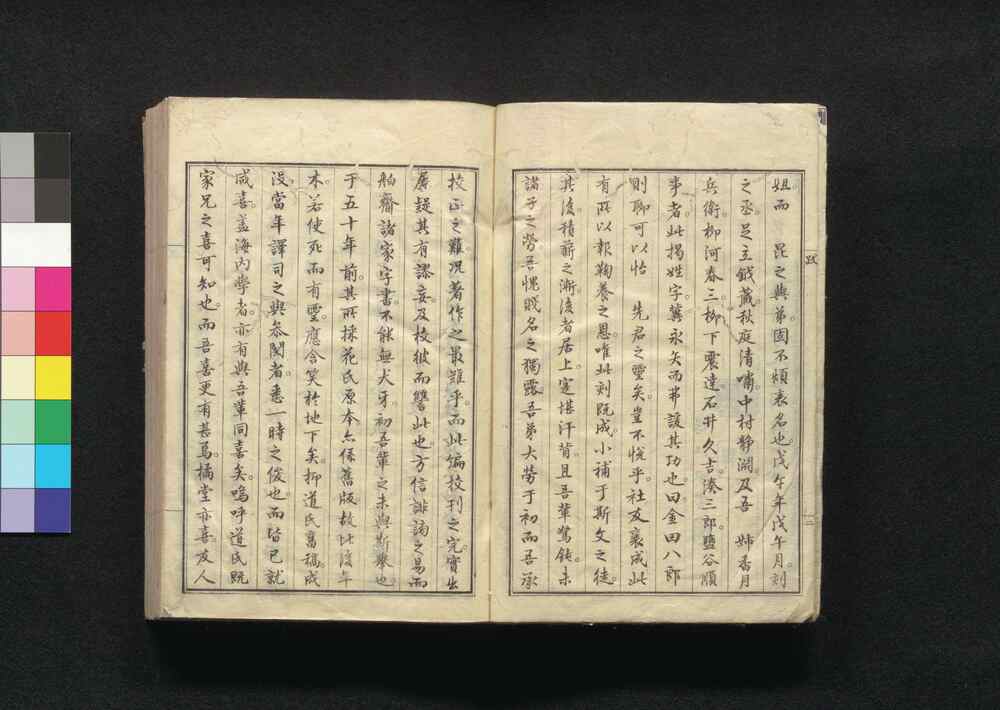 姐而　昆之與弟固不煩表名也戊午年戊午月刻
之丞足立鉞藏秋庭清嘯中村靜淵及吾　姉香月
兵衛柳河春三柳下震達石井久吉湊三郎鹽谷順
事者此揭姓字冀永矣而弗諼其功也曰金田八郎
則聊可以怡　先君之靈矣豈不悅乎社友裏成此
有所以報鞠養之恩唯此刻既成小補于斯文之徒
其後積薪之漸後者居上寔堪汗背且吾輩駑鈍未
諸子之勞吾愧賤名之獨露吾弟大勞于初而吾承
跋
二
校正之難況著作之最難乎而此編校刊之完實出
屢疑其有謬妄及校彼而讐此也方信誹謗之易而
舶齎諸家字書不能無犬牙初吾輩之未與斯擧也
于五十年前其所採花氏原本亦係舊版故比後年
木若使死而有靈應含笑於地下矣柳道民舊稿成
沒當年譯司之與參閱者悉一時之俊也而皆已就
咸喜蓋海內學者亦有與吾輩同喜矣嗚呼道民既
家兄之喜可知也而吾喜更有甚焉橘堂亦喜友人